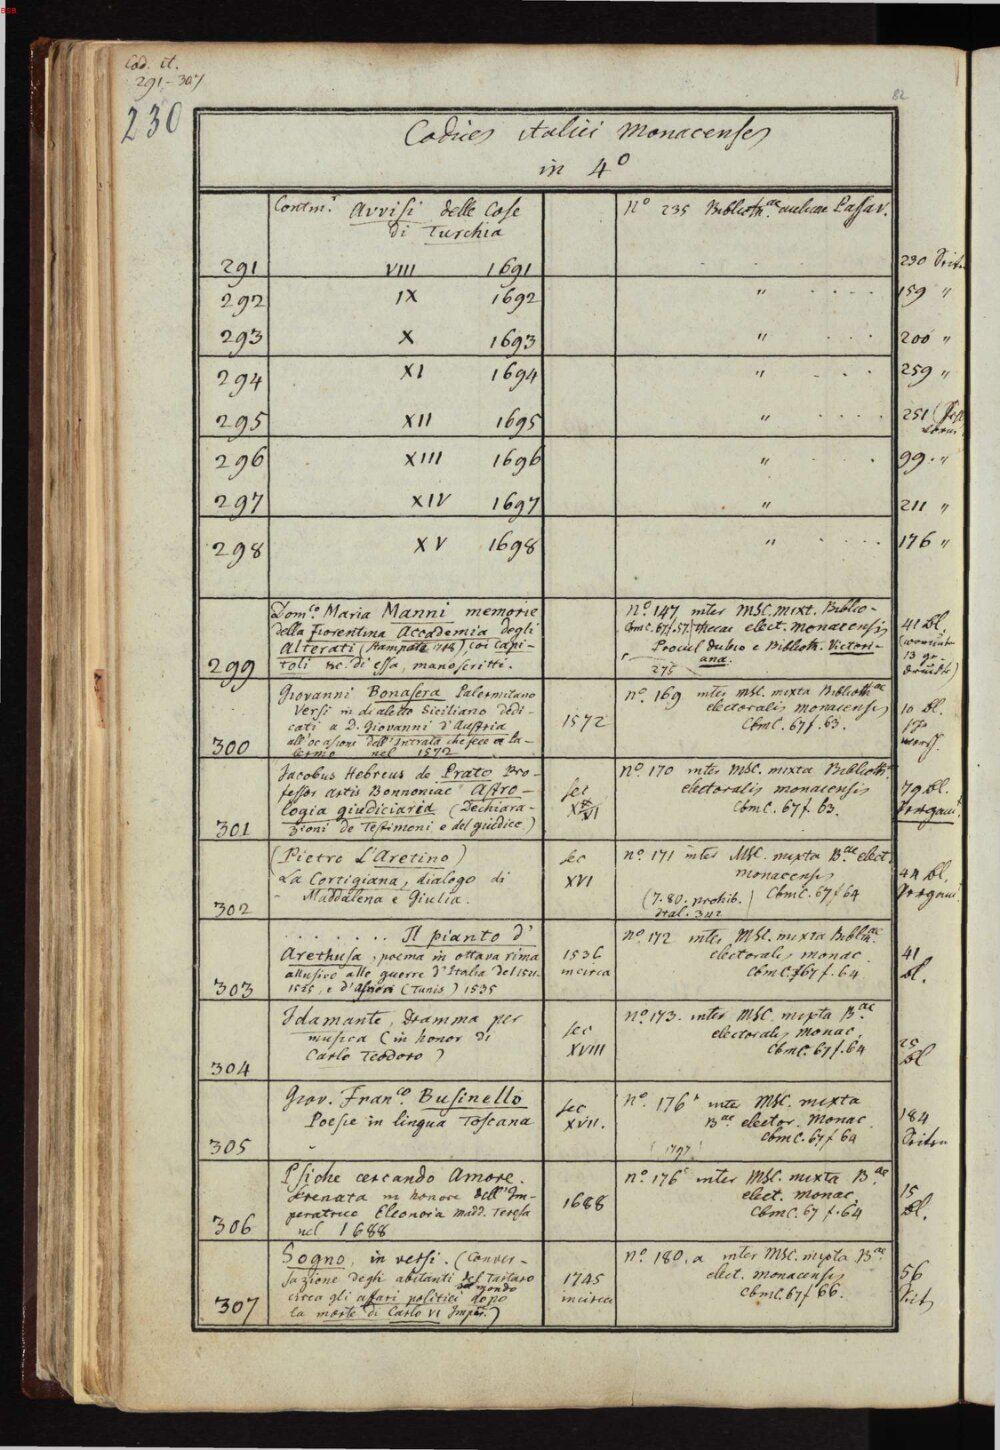 BSB
Cod. it.
291-307
230
82
Codices italici monacenses
in 4º
Contin. Avvisi delle Cose
di Turchia
Nº 235 Biblioth.ae aulicae Passav.
291 VIII 1691 230
292 IX 1692 " 159 "
293 X 1693 " 200 "
294 XI 1694 " 259 "
295 XII 1695 " 251
296 XIII 1696 " 99. "
297 XIV 1697 " 211 "
298 XV 1698 " 176 "
Dom.co Maria Manni memorie
della Fiorentina Accademia degli
Alterati (stampate 748) coi Capi-
toli &c. di essa, manoscritti.
299
nº. 147 inter MSC. mixt. Biblio-
Cbm C. 67 f. 57. thecae elect. monacensis
Procul dubio e Biblioth. Victori-
ana.
275
41 Bl.
13 gr.
Giovanni Bonasera Palermitano
Versi in dialetto Siciliano dedi-
cati a D. Giovanni d'Austria
all'ocasioni dell'Intrata che fece a Pa-
lermo nel 1572
300
1572
nº. 169 inter msc. mixta Biblioth.ae
electoralis monacensis
Cbm C. 67 f. 63.
10 Bl.
Jacobus Hebreus de Prato Pro-
fessor artis Bononiae Astro-
logia giudiciaria (Dechiara-
zioni de Testimoni e del giudice.)
301
sec
XVI
nº. 170 inter MSC. mixta Biblioth.
electoralis monacensis
Cbm C. 67 f. 63.
79 Bl.
Pergam.
(Pietro L'Aretino)
La Cortigiana, dialogo di
Maddalena e Giulia.
302
sec
XVI
nº. 171 inter MSC. mixta B.ae elect.
monacensis
Cbm C. 67 f. 64
(7. 80. prohib.)
Ital. 312
44 Bl.
Pergam.
. . . . . . . Il pianto d'
Arethusa, poema in ottava rima
allusivo alle guerre d'Italia del 1521.
1525, e d'Africa (Tunis) 1535
303
1536
incirca
nº. 172 inter MSC. mixta Biblioth.ae
electoralis monac.
Cbm C. 67 f. 64
41
Bl.
Idamante, Dramma per
musica (in honor di
Carlo Teodoro)
304
sec
XVIII
nº. 173. inter MSC. mixta B.ae
electoralis monac.
Cbm C. 67 f. 64
25
Bl
Giov. Franc.co Businello
Poesie in lingua Toscana
305
sec
XVII.
nº. 176 b inter MSC. mixta
B.ae elector. Monac
Cbm C. 67 f 64
(1797)
184
Psiche cercando Amore.
Serenata in honore dell'Im-
peratrice Eleonora Madd. Teresa
nel 1688
306
1688
nº. 176 c inter MSC. mixta B.ae
elect. monac.
Cbm C. 67 f. 64
15
Bl.
Sogno, in versi. (Conver-
sazione degli abitanti del Tartaro
mondo
circa gli affari politici dopo
la morte di Carlo VI Imper.)
307
1745
incirca
nº. 180, a inter MSC. mixta B.ae
elect. monacensis
Cbm C. 67 f 66.
56